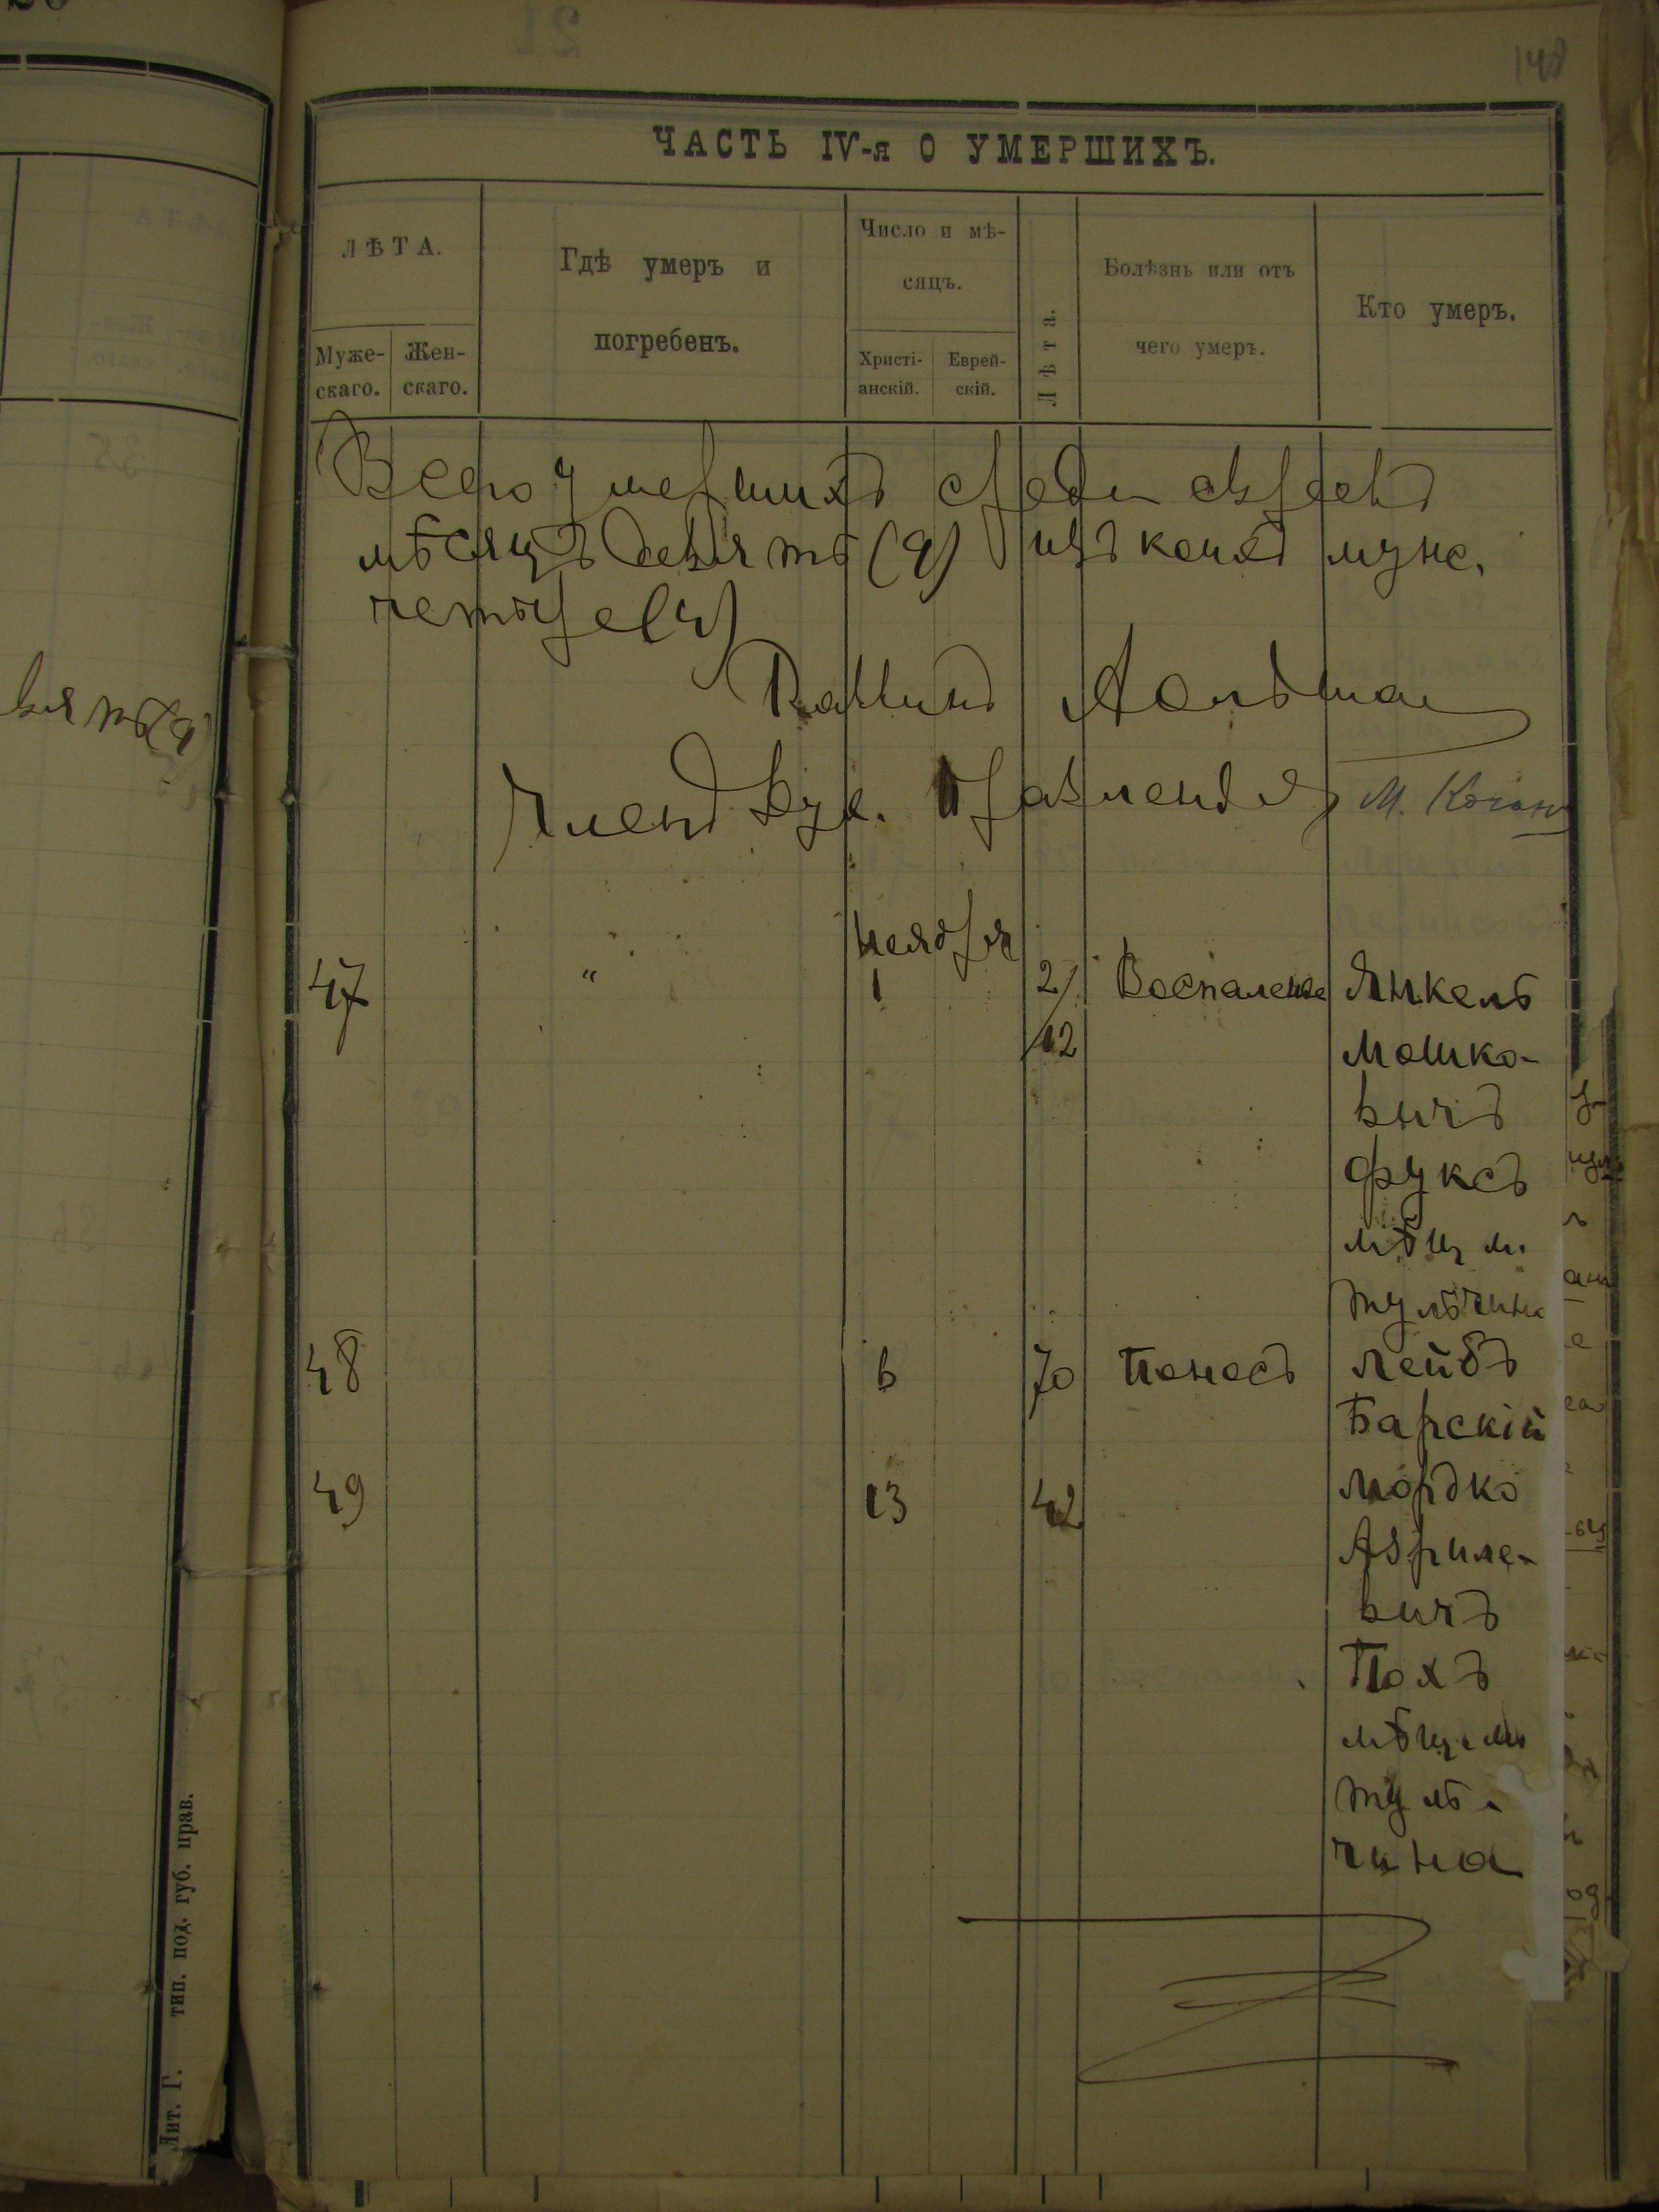 148
ЧАСТЬ IV-я О УМЕРШИХЪ.
ЛѢТА.
Муже-
скаго.
Жен-
скаго.
Гдѣ умеръ и
погребенъ.
Число и мѣ-
сяцъ.
Христі-
анскій.
Еврей-
скій.
Лѣта.
Болѣзнь или отъ
чего умеръ.
Кто умеръ.
Всего умершихъ среди евреевъ
мѣсяцъ девять (9) изъ коихъ муж.
четыре (4)
Раввинъ
Членъ Дух. Правленія М. Коганъ
ноября
47 " 1 2/12 Воспаленіе Янкель
Мошко-
вичъ
Фуксъ
мѣщ м.
Тульчина
48 6 70 Поносъ Лейбъ
Барскій
49 13 42 Мордко
Азриле-
вичъ
Похъ
мѣщ. м
Туль-
чина
Лит. Г. тип. под. губ. прав.